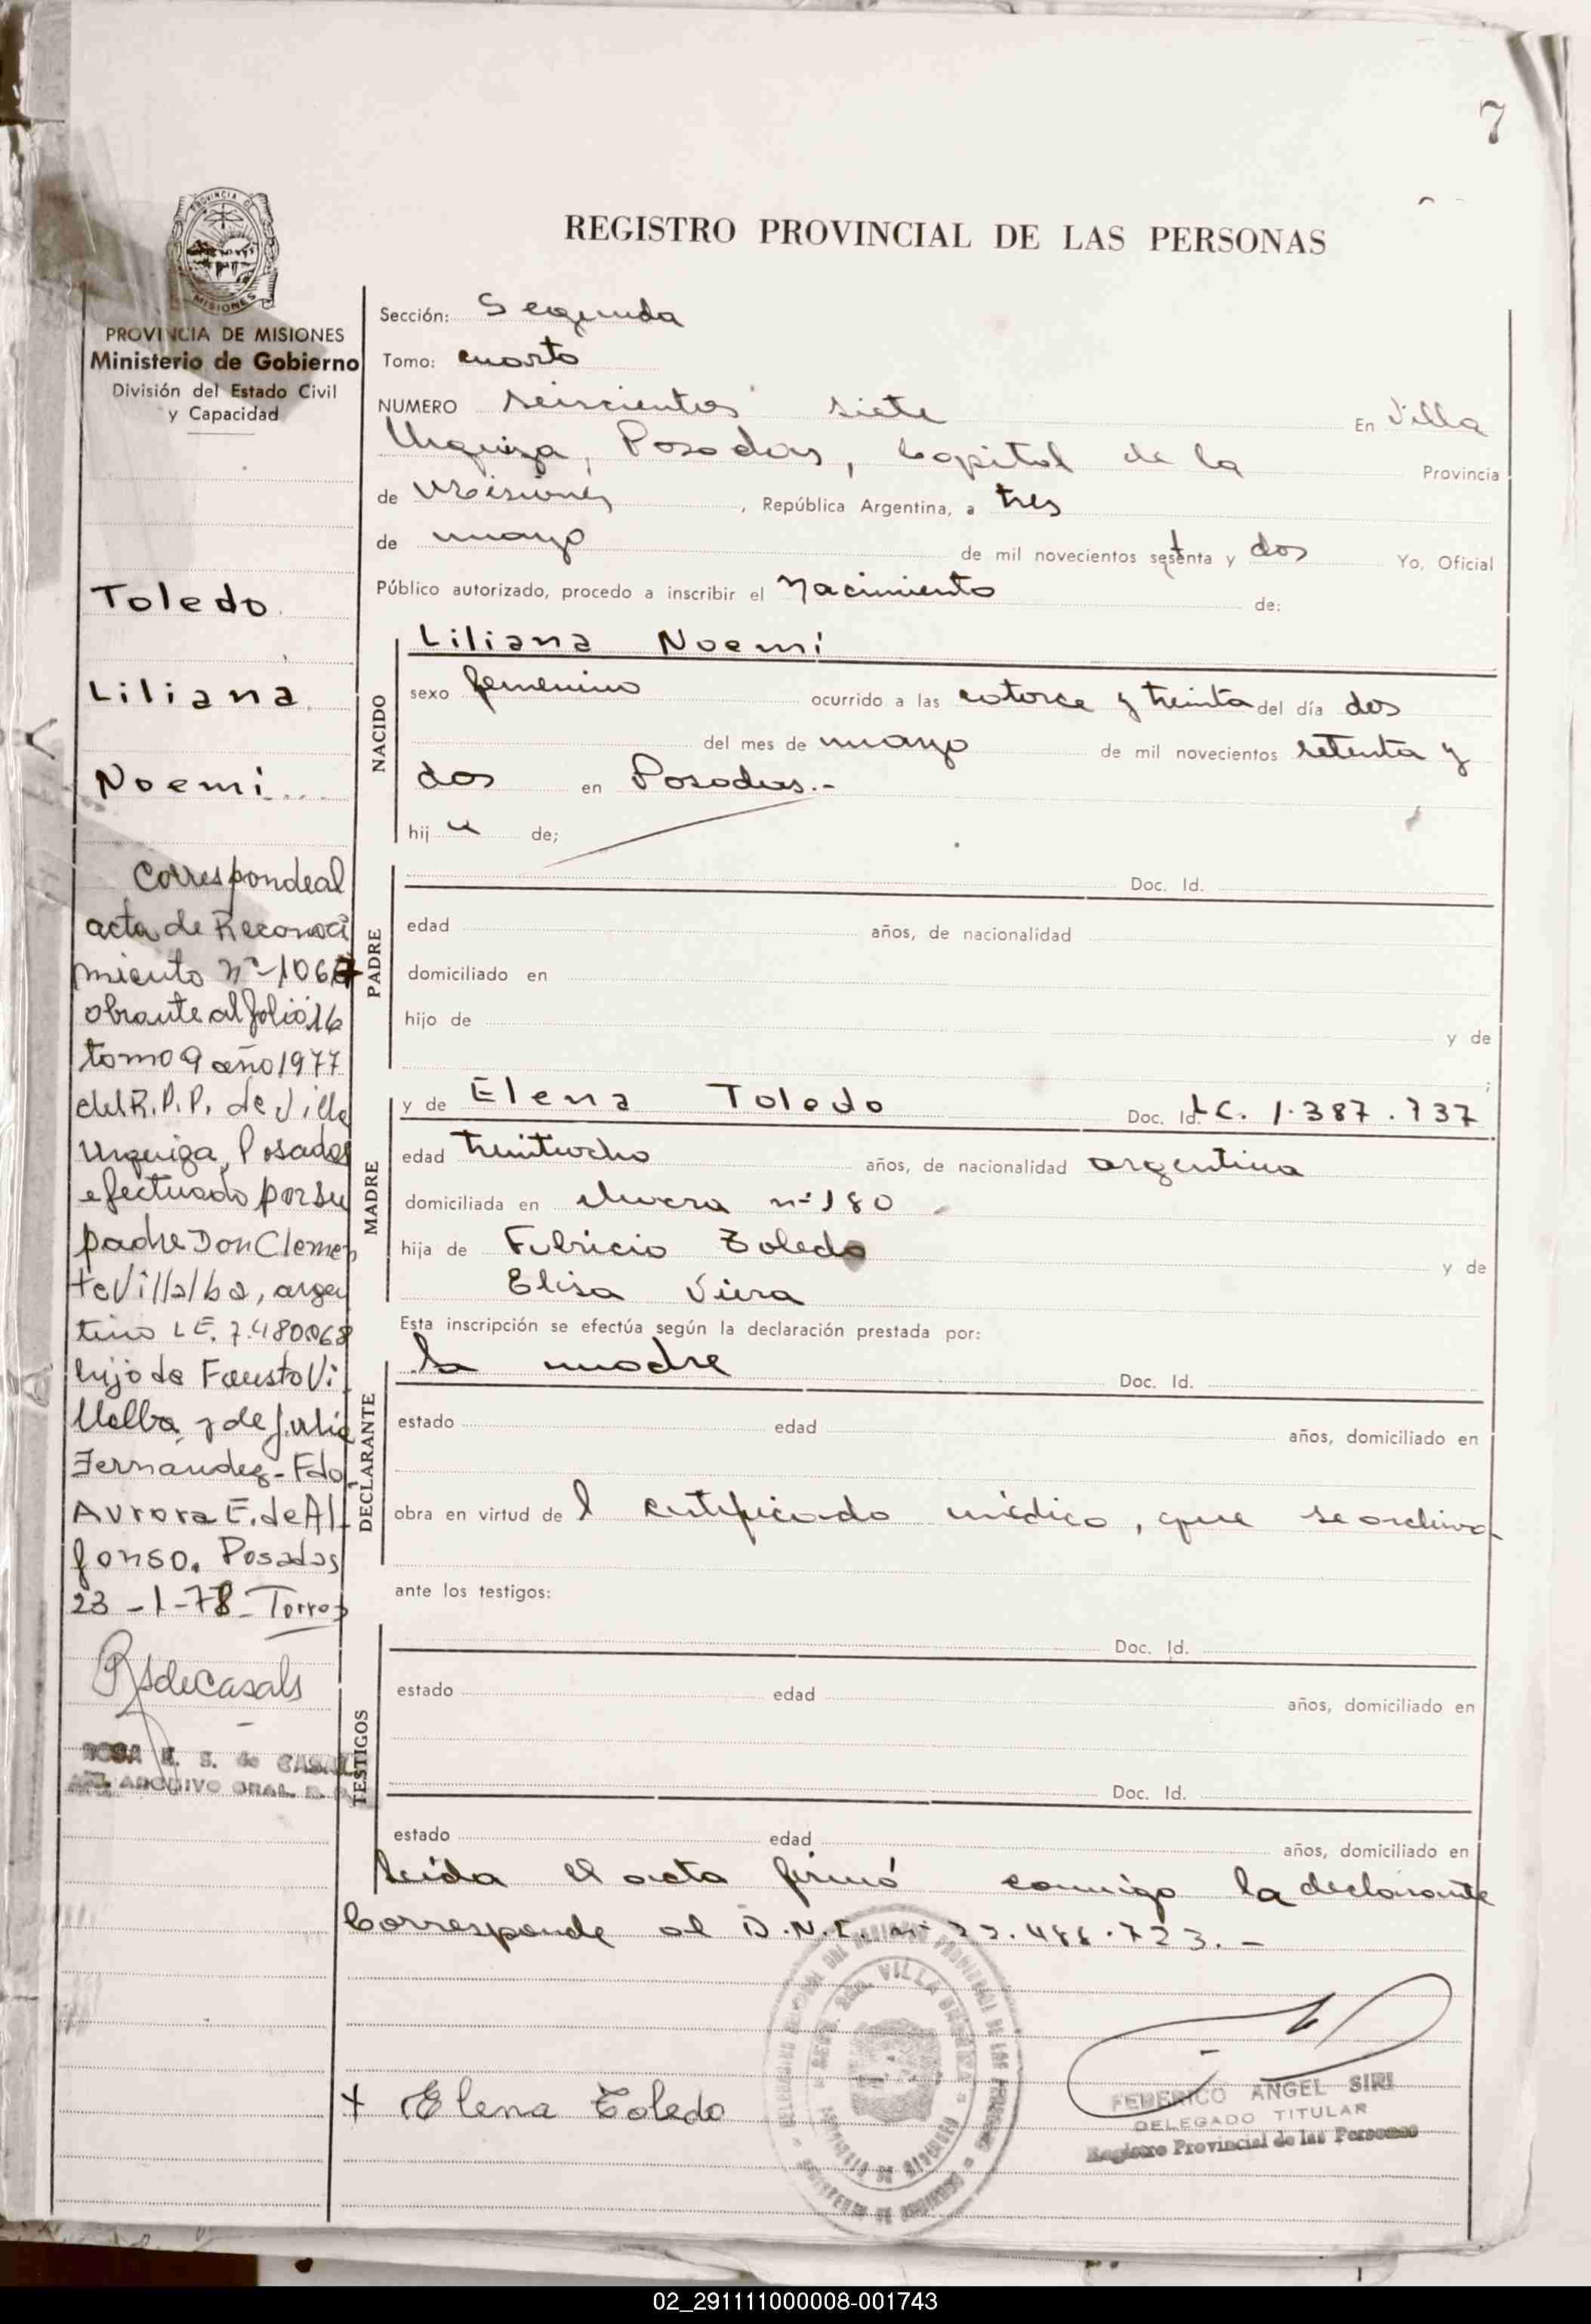 7
REGISTRO PROVINCIAL DE LAS PERSONAS
PROVINCIA DE MISIONES
Ministerio de Gobierno
División del Estado Civil
y Capacidad
Toledo
Liliana
Noemi
Corresponde al
acta de Reconoci
miento nº 1067
obrante al folio 16
tomo 9 año 1977
del R.P.P. de Villa
Urquiza, Posadas
efectuado por su
padre Don Clemen
te Villalba, argen
tino L.E. 7.480.068
hijo de Fausto Vi
llalba y de Julia
Fernandez - Fdo.
Aurora E. de Al
fonso. Posadas
23-1-78 - Torres
RSdeCasals
ROSA E. S. de CASALS
ARCHIVO GRAL.
Sección: Segunda
Tomo: cuarto
NUMERO seiscientos siete En Villa
Urquiza, Posadas, Capital de la Provincia
de Misiones, República Argentina, a tres
de mayo de mil novecientos setenta y dos Yo, Oficial
Público autorizado, procedo a inscribir el Nacimiento de:
NACIDO
Liliana Noemi
sexo femenino ocurrido a las catorce y treinta del día dos
del mes de mayo de mil novecientos setenta y
dos en Posadas.-
hij a de;
PADRE
Doc. Id.
edad años, de nacionalidad
domiciliado en
hijo de y de
;
MADRE
y de Elena Toledo Doc. Id. LC. 1.387.737
edad treintiocho años, de nacionalidad argentina
domiciliada en nº 180
hija de Fabricio Toledo y de
Elisa Viera
Esta inscripción se efectúa según la declaración prestada por:
DECLARANTE
la madre Doc. Id.
estado edad años, domiciliado en
obra en virtud de l certificado médico, que se archiva
ante los testigos:
TESTIGOS
Doc. Id.
estado edad años, domiciliado en
Doc. Id.
estado edad años, domiciliado en
leída el acta firmó conmigo la declarante
Corresponde al D.N.I. nº 22.488.723.-
+ Elena Toledo
VILLA URQUIZA
FEDERICO ANGEL SIRI
DELEGADO TITULAR
Registro Provincial de las Personas
02_291111000008-001743